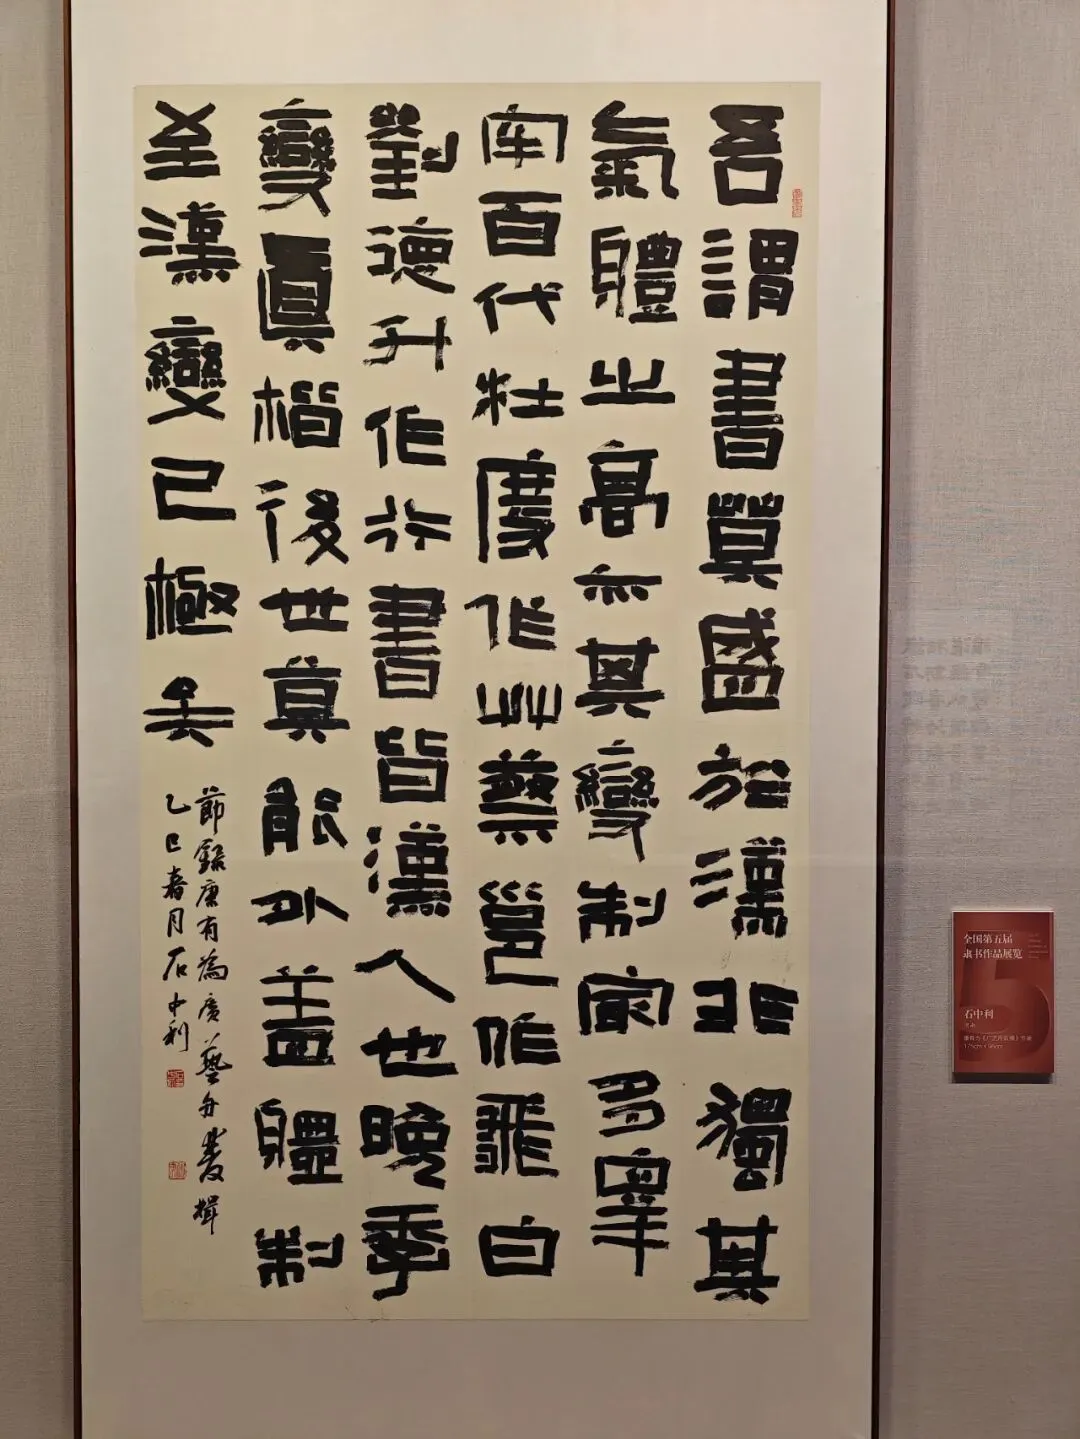 吾謂書莫盛於漢非獨其
氣體之高亦其變制冣多皋
牢百代杜度作艸蔡邕作飛白
劉德升作行書皆漢人也晚季
變眞楷後世莫能外蓋體制
至漢變已極矣
節錄康有為廣藝舟雙楫
乙巳春月石中利
全国第五届
隶书作品展览
石中利